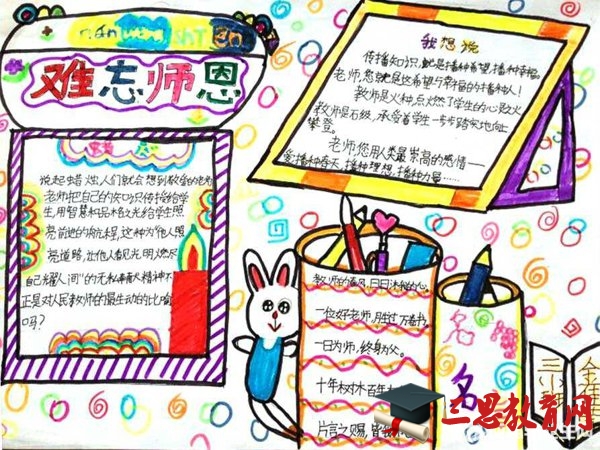 nán wàng shī ēn
难忘师恩
我想说
传播知识,就是播种希望,播种幸福。
老师,您就是这希望与幸福的播种人!
教师是火种,点燃了学生的心灵之火
教师是石级,承受着学生一步步踏实地向上
攀登。
老师,您用人类最崇高的感情——
爱,播种春天,播种理想,播种力量……
说起蜡烛,人们就会想到教学的老师
老师把自己的知识传授给学
生,用智慧和品格之光给学生照
亮前进的航程,这种为他人照
亮道路,让他人看见光明,燃尽
自己耀人间"的无私奉献精神不
正是对人民教师的最生动的比喻
吗?
教师的春风,日日沐我心。
一位好老师,胜过万卷书。
一日为师,终身为父。
十年树木,百年
片言之赐,皆
名
名
三思教育网